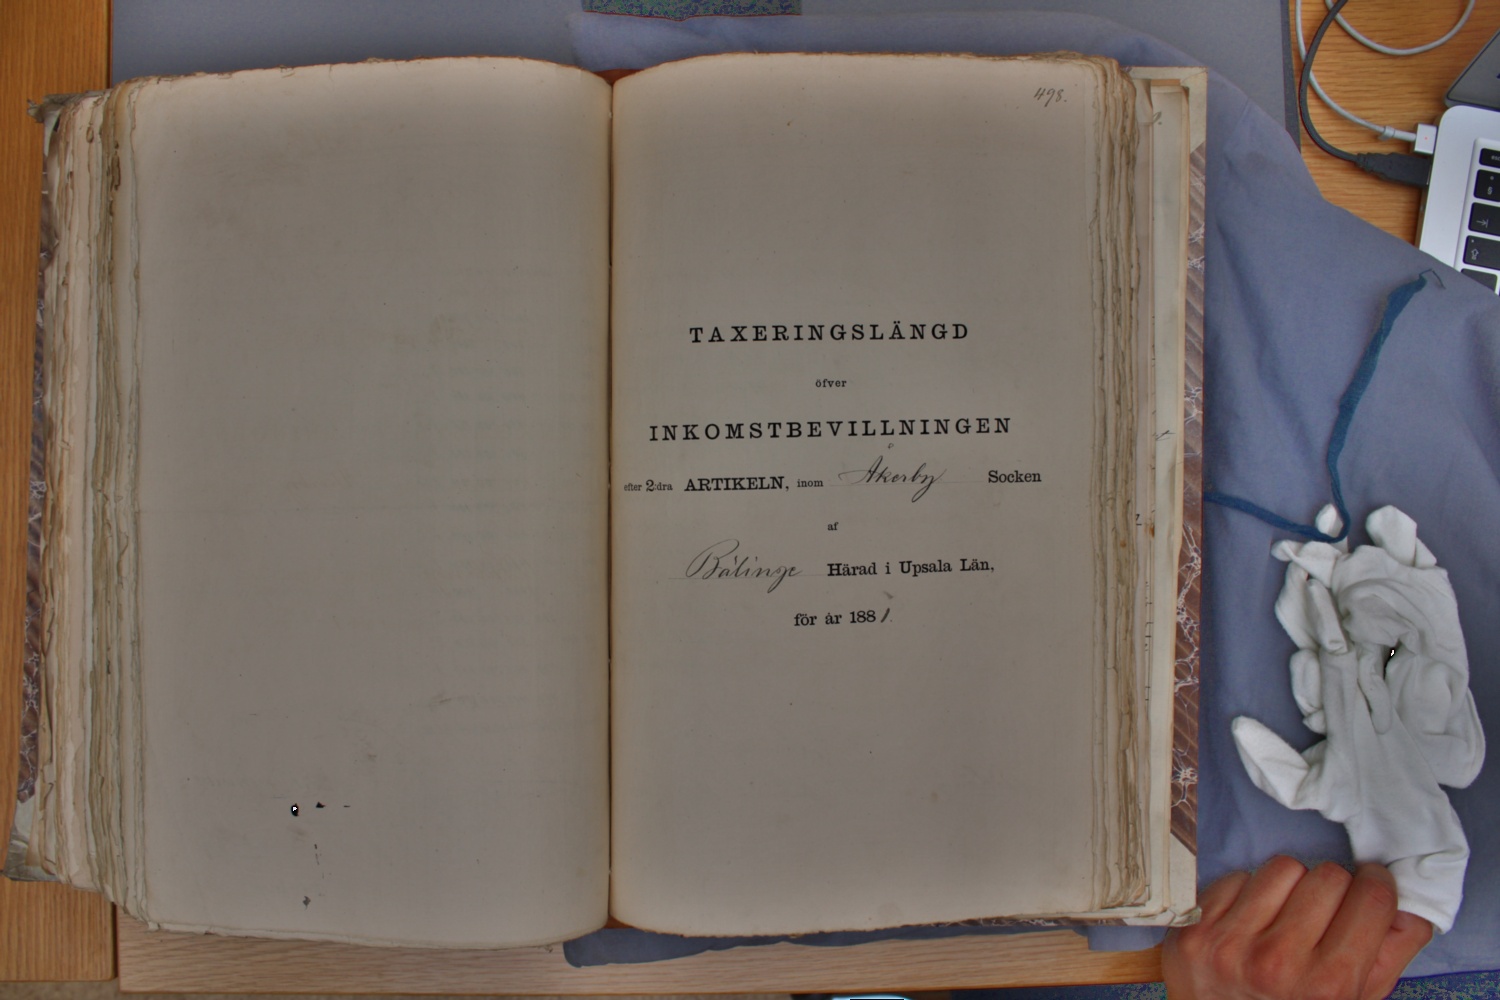 498.
TAXERINGSLÄNGD
öfver
INKOMSTBEVILLNINGEN
efter 2:dra ARTIKELN, inom Åkerby Socken
af
Bälinge Härad i Upsala Län,
för år 1881.